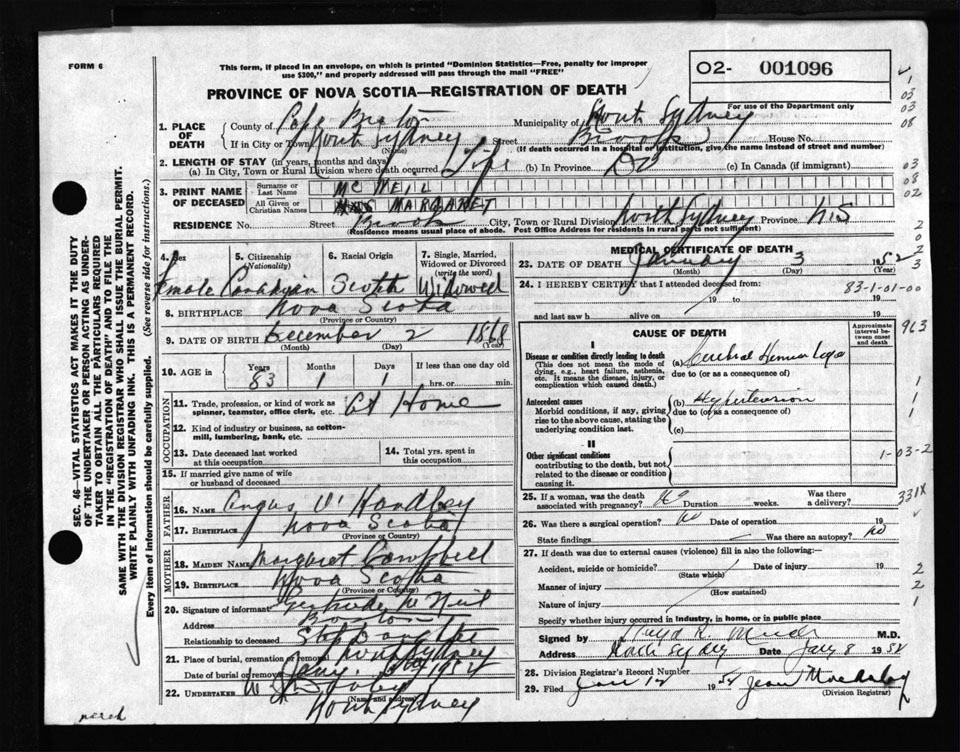 FORM 6
This form, if placed in an envelope, on which is printed "Dominion Statistics—Free, penalty for improper
use $300," and properly addressed will pass through the mail "FREE"
PROVINCE OF NOVA SCOTIA—REGISTRATION OF DEATH
02- 001096
For use of the Department only
1. PLACE OF DEATH
County of Cape Breton Municipality of North Sydney
If in City or Town North Sydney (Name) Street Brook House No.
(If death occurred in a hospital or institution, give the name instead of street and number)
2. LENGTH OF STAY (in years, months and days)
(a) In City, Town or Rural Division where death occurred Life (b) In Province Do (c) In Canada (if immigrant)
3. PRINT NAME OF DECEASED
Surname or Last Name MC NEIL
All Given or Christian Names MARGARET
RESIDENCE No. Street Brook City, Town or Rural Division North Sydney Province N.S
(Residence means usual place of abode. Post Office Address for residents in rural parts not sufficient)
4. Sex Female
5. Citizenship (Nationality) Canadian
6. Racial Origin Scotch
7. Single, Married, Widowed or Divorced (write the word) Widowed
8. BIRTHPLACE Nova Scotia
(Province or Country)
9. DATE OF BIRTH December 2 1868
(Month) (Day) (Year)
10. AGE IN Years 83 Months 1 Days 1 If less than one day old hrs. or min.
OCCUPATION
11. Trade, profession or kind of work as spinner, teamster, office clerk, etc. At Home
12. Kind of industry or business, as cotton-mill, lumbering, bank, etc.
13. Date deceased last worked at this occupation
14. Total yrs. spent in this occupation
15. If married give name of wife or husband of deceased
FATHER
16. Name Angus O'Handley
17. Birthplace Nova Scotia
(Province or Country)
MOTHER
18. MAIDEN NAME Margaret Campbell
19. Birthplace Nova Scotia
(Province or Country)
20. Signature of informant Gertrude McNeil
Address Boston
Relationship to deceased Step Daughter
21. Place of burial, cremation or removal North Sydney
Date of burial or removal Jany.
22. UNDERTAKER
(Name and address)
North Sydney
MEDICAL CERTIFICATE OF DEATH
23. DATE OF DEATH January 3 1952
(Month) (Day) (Year)
24. I HEREBY CERTIFY that I attended deceased from:
83-1-01-00
19 to 19
and last saw h alive on 19
CAUSE OF DEATH
Approximate interval between onset and death
I
Disease or condition directly leading to death
(This does not mean the mode of dying, e.g., heart failure, asthenia, etc. It means the disease, injury, or complication which caused death.)
(a) Cerebral Hemorrhage
due to (or as a consequence of)
Antecedent causes
Morbid conditions, if any, giving rise to the above cause, stating the underlying condition last.
(b) Hypertension
due to (or as a consequence of)
(c)
II
Other significant conditions
contributing to the death, but not related to the disease or condition causing it.
25. If a woman, was the death associated with pregnancy? No Duration weeks. Was there a delivery?
26. Was there a surgical operation? No Date of operation 19
State findings Was there an autopsy? No
27. If death was due to external causes (violence) fill in also the following:—
Accident, suicide or homicide? Date of injury 19
(State which)
Manner of injury
(How sustained)
Nature of injury
Specify whether injury occurred in Industry, in home, or in public place
Signed by M.D.
Address North Sydney Date Jany 8 1952
28. Division Registrar's Record Number
29. Filed Jan 12 19 Jean
(Division Registrar)
SEC. 46—VITAL STATISTICS ACT MAKES IT THE DUTY
OF THE UNDERTAKER OR PERSON ACTING AS UNDER-
TAKER TO OBTAIN ALL THE PARTICULARS REQUIRED
IN THE "REGISTRATION OF DEATH" AND TO FILE THE
SAME WITH THE DIVISION REGISTRAR WHO SHALL ISSUE THE BURIAL PERMIT.
WRITE PLAINLY WITH UNFADING INK. THIS IS A PERMANENT RECORD.
Every item of information should be carefully supplied. (See reverse side for instructions.)
1
03
03
08
03
08
02
2
0
2
3
963
1
1
1
1-03-2
331X
2
2
1